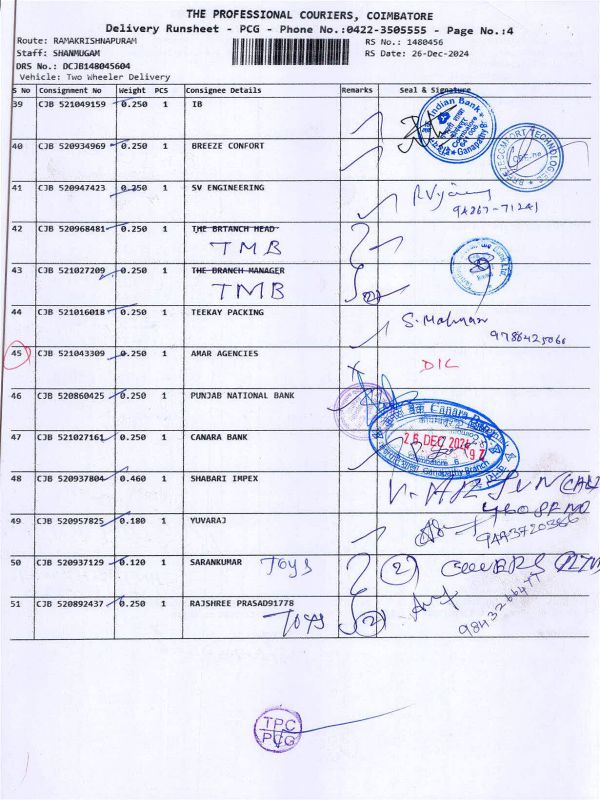 THE PROFESSIONAL COURIERS, COIMBATORE
Delivery Runsheet - PCG - Phone No.:0422-3505555 - Page No.:4
Route: RAMAKRISHNAPURAM RS No.: 1480456
Staff: SHANMUGAM RS Date: 26-Dec-2024
DRS No.: DCJB148045604
Vehicle: Two Wheeler Delivery
S No Consignment No Weight PCS Consignee Details Remarks Seal & Signature
39 CJB 521049159 0.250 1 IB
Indian Bank
40 CJB 520934969 0.250 1 BREEZE CONFORT
41 CJB 520947423 0.250 1 SV ENGINEERING
94867-71241
42 CJB 520968481 0.250 1 THE BRTANCH HEAD
TMB
43 CJB 521027209 0.250 1 THE BRANCH MANAGER
TMB (2)
44 CJB 521016018 0.250 1 TEEKAY PACKING S. Mohnan
9788425066
45 CJB 521043309 0.250 1 AMAR AGENCIES X DIL
46 CJB 520860425 0.250 1 PUNJAB NATIONAL BANK
47 CJB 521027161 0.250 1 CANARA BANK
26 DEC 2024
Ganapathy Branch
48 CJB 520937804 0.460 1 SHABARI IMPEX
49 CJB 520957825 0.180 1 YUVARAJ
9443720366
50 CJB 520937129 0.120 1 SARANKUMAR TOYS (2)
51 CJB 520892437 0.250 1 RAJSHREE PRASAD91778
TOYS (2)
TPC
PCG